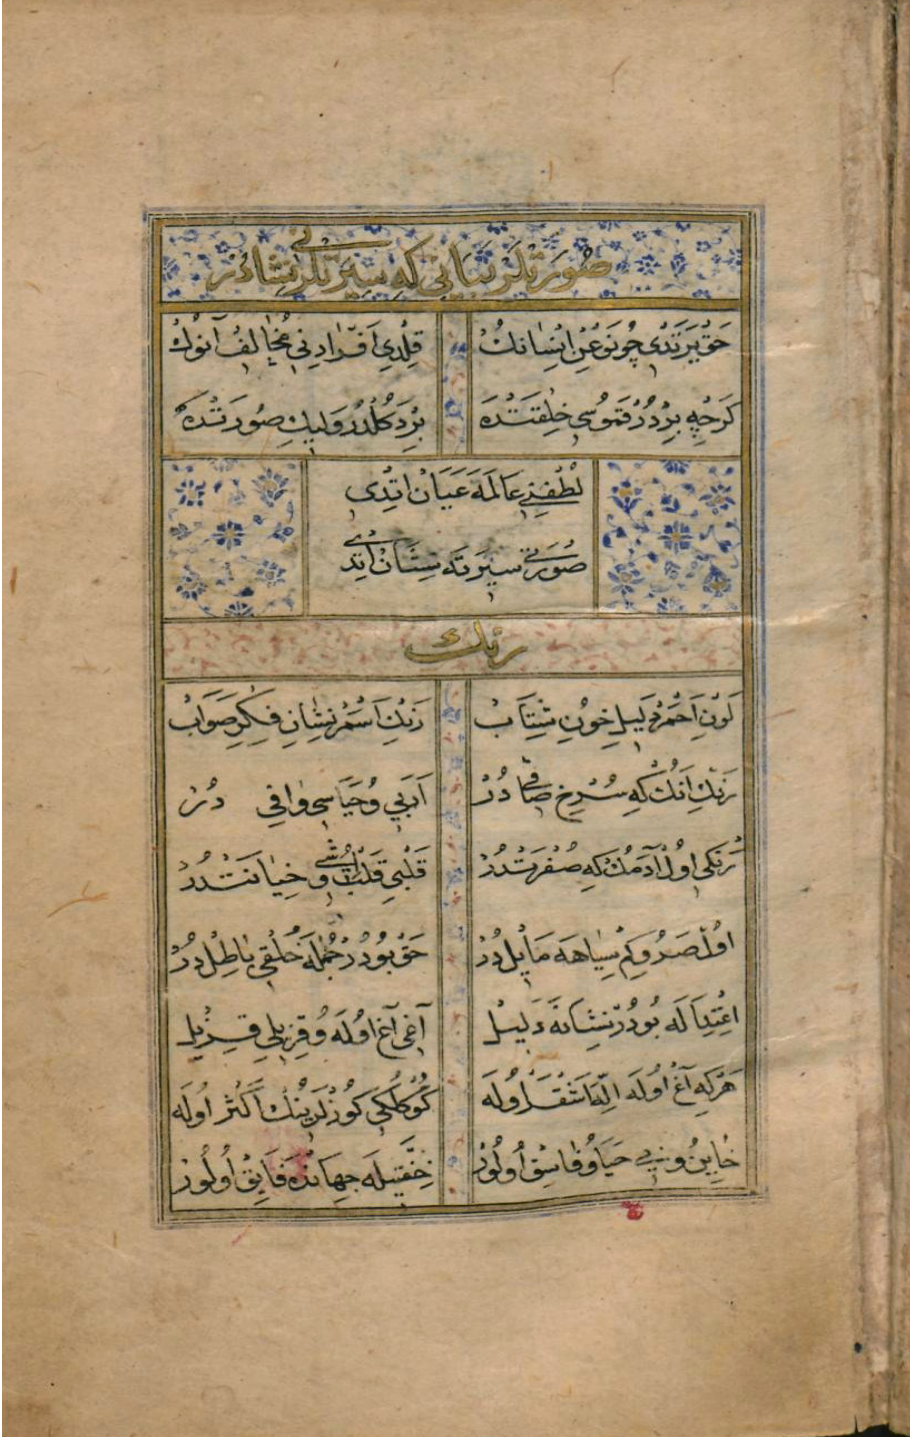 صُورَتْلَرْ بَيَانِي كِه سِيرَتْلَرْ نِشَانِيدُرْ
حَقْ يَرَتْدِي چُو نَوْعِنْ اِنْسَانُكْ قِلْدِي اَفْرَادِنِي مُخَالِفْ آنُوكْ
كَرْچِه بِرْدُرْ قَمُوسِي خِلْقَتْدَه بِرْ دَكُلْدُرْ وَلِيكِ صُورَتْدَه
لُطْفِنِي عَالَمَه عَيَانْ اِتْدِي
صُورَتِي سِيرَتَه نِشَانْ اِتْدِي
رنك
لَوْنِ اَحْمَرْ دَلِيلِ خُونِ شِتَابْ رَنْكِ اَسْمَرْ نِشَانِ فِكْرِ صَوَابْ
رَنْكِ اَنُكْ كِه سُرْخِ صَافِي دُرْ اَدَبِي وُ حَيَاسِي وَافِي دُرْ
رَنْكِي اُولْ آدَمُكْ كِه صُفْرَتْدُرْ قَلْبِي قَلْب اِشِي وُ خِيَانَتْدُرْ
اُولْ صَرُو كِمْ سِيَاهَه مَايِلْ دُرْ حَقْ بُودُرْ جُمْلَه خُلْقِي بَاطِلْ دُرْ
اِعْتِدَالَه بُودُرْ نِشَانَه دَلِيلْ آغِي آغْ اُولَه وُ قِزِيلِي قِزِيلْ
هَرْكِه آغْ اُولَه اِلَّا اَشْقَرْ اُولَه كُوكْلُكِي كُوزْلَرِينُكْ اَكْثَرْ اُولَه
خَايِنْ و بِي حَيَا وُ فَاسِقْ اُولُورْ خِفَّتِيلَه جِهَانْدَه فَايِقْ اُولُورْ